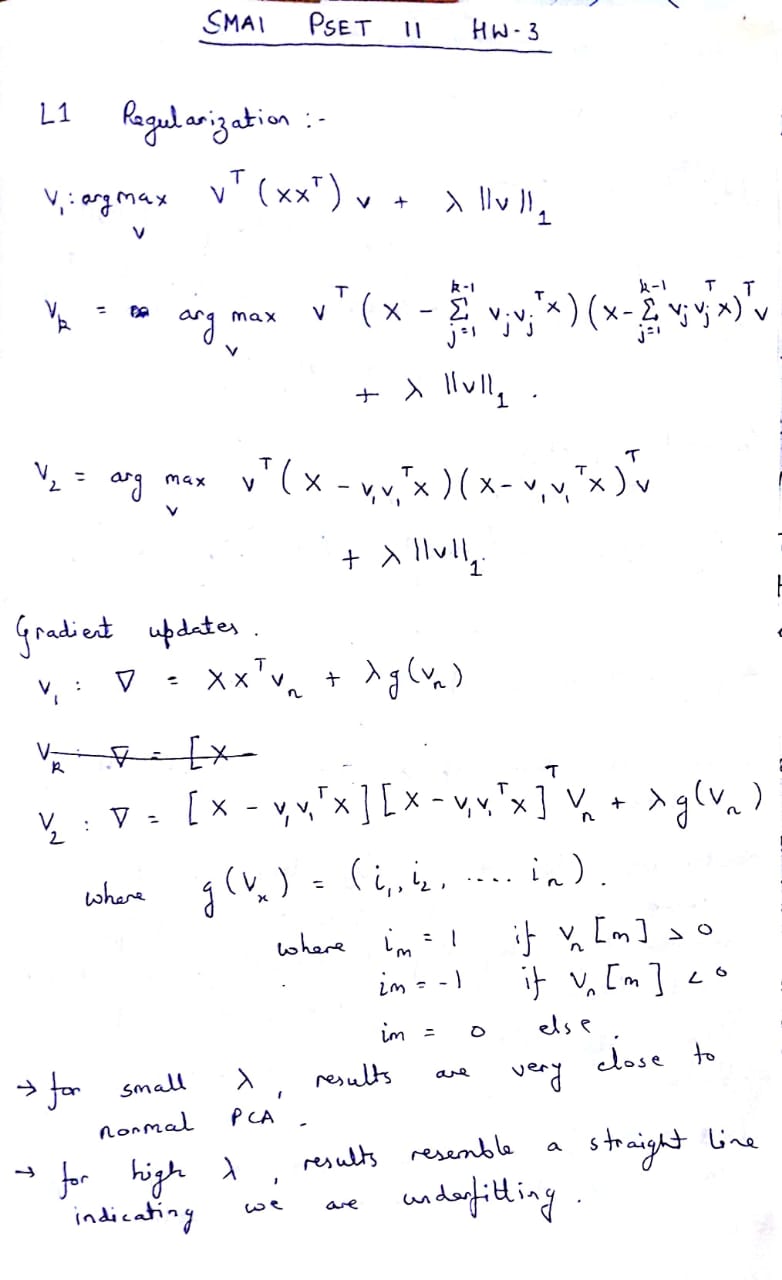 SMAI PSET 11 HW-3
L1 Regularization :-
V₁ : arg max_v vᵀ (xxᵀ) v + λ ||v||₁
V_k = arg max_v vᵀ (x - Σ_{j=1}^{k-1} v_j v_jᵀ x) (x - Σ_{j=1}^{k-1} v_j v_jᵀ x)ᵀ v
+ λ ||v||₁ .
V₂ = arg max_v vᵀ (x - v₁v₁ᵀx) (x - v₁v₁ᵀx)ᵀ v
+ λ ||v||₁.
Gradient updates .
V₁ : ∇ = xxᵀv_n + λg(v_n)
V_k : ∇ = [x
V₂ : ∇ = [x - v₁v₁ᵀx] [x - v₁v₁ᵀx]ᵀ V_n + λg(v_n)
where g(v_x) = (i₁, i₂, .... i_n) .
where i_m = 1 if v_n [m] > 0
im = -1 if v_n [m] < 0
im = 0 else .
→ for small λ , results are very close to
normal PCA .
→ for high λ , results resemble a straight line
indicating we are underfitting .